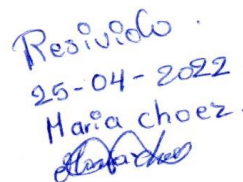 Resivido.
25-04-2022
Maria choez.